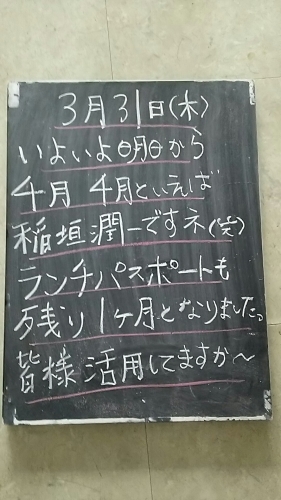 3月31日(木)
いよいよ明日から
4月 4月といえば
稲垣潤一ですネ(笑)
ランチパスポートも
残り1ヶ月となりましたっ
皆様活用してますか〜